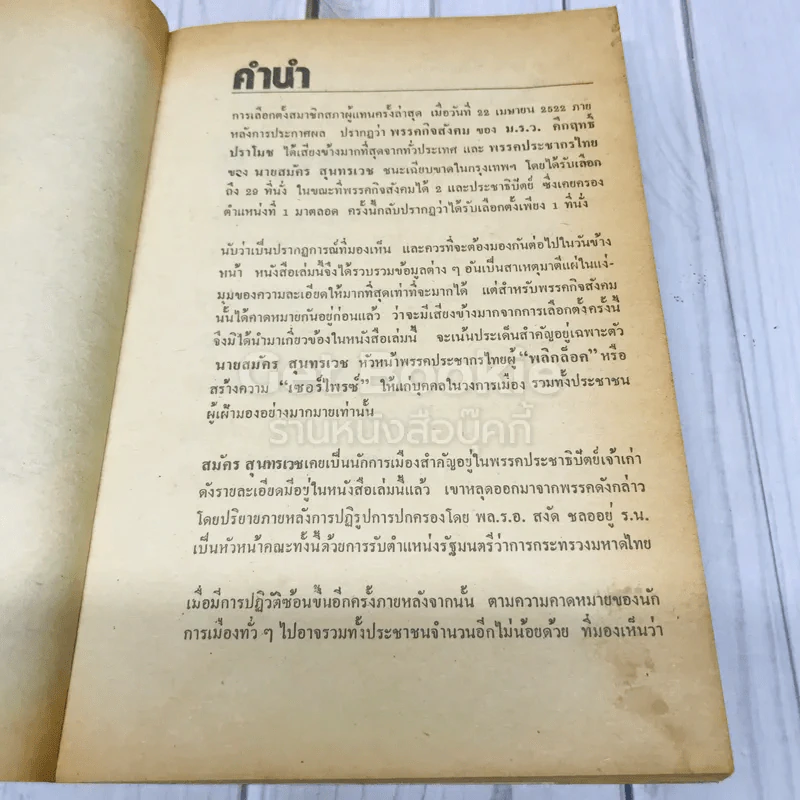 คำนำ
การเลือกตั้งสมาชิกสภาผู้แทนครั้งล่าสุด เมื่อวันที่ 22 เมษายน 2522 ภาย
หลังการประกาศผล ปรากฏว่า พรรคกิจสังคม ของ ม.ร.ว. คึกฤทธิ์
ปราโมช ได้เสียงข้างมากที่สุดจากทั่วประเทศ และ พรรคประชากรไทย
ของ นายสมัคร สุนทรเวช ชนะเฉียบขาดในกรุงเทพฯ โดยได้รับเลือก
ถึง 29 ที่นั่ง ในขณะที่พรรคกิจสังคมได้ 2 และประชาธิปัตย์ ซึ่งเคยครอง
ตำแหน่งที่ 1 มาตลอด ครั้งนี้กลับปรากฏว่าได้รับเลือกตั้งเพียง 1 ที่นั่ง
นับว่าเป็นปรากฏการณ์ที่มองเห็น และควรที่จะต้องมองกันต่อไปในวันข้าง
หน้า หนังสือเล่มนี้จึงได้รวบรวมข้อมูลต่าง ๆ อันเป็นสาเหตุมาตีแผ่ในแง่-
มุมของความละเอียดให้มากที่สุดเท่าที่จะมากได้ แต่สำหรับพรรคกิจสังคม
นั้นได้คาดหมายกันอยู่ก่อนแล้ว ว่าจะมีเสียงข้างมากจากการเลือกตั้งครั้งนี้
จึงมิได้นำมาเกี่ยวข้องในหนังสือเล่มนี้ จะเน้นประเด็นสำคัญอยู่เฉพาะตัว
นายสมัคร สุนทรเวช หัวหน้าพรรคประชากรไทยผู้ “พลิกล็อค” หรือ
สร้างความ “เซอร์ไพรซ์” ให้แก่บุคคลในวงการเมือง รวมทั้งประชาชน
ผู้เฝ้ามองอย่างมากมายเท่านั้น
ร้านหนังสือบุ๊คกี้
สมัคร สุนทรเวชเคยเป็นนักการเมืองสำคัญอยู่ในพรรคประชาธิปัตย์เจ้าเก่า
ดังรายละเอียดมีอยู่ในหนังสือเล่มนี้แล้ว เขาหลุดออกมาจากพรรคดังกล่าว
โดยปริยายภายหลังการปฏิรูปการปกครองโดย พล.ร.อ. สงัด ชลออยู่ ร.น.
เป็นหัวหน้าคณะทั้งนี้ด้วยการรับตำแหน่งรัฐมนตรีว่าการกระทรวงมหาดไทย
เมื่อมีการปฏิวัติซ้อนขึ้นอีกครั้งภายหลังจากนั้น ตามความคาดหมายของนัก
การเมืองทั่ว ๆ ไปอาจรวมทั้งประชาชนจำนวนอีกไม่น้อยด้วย ที่มองเห็นว่า